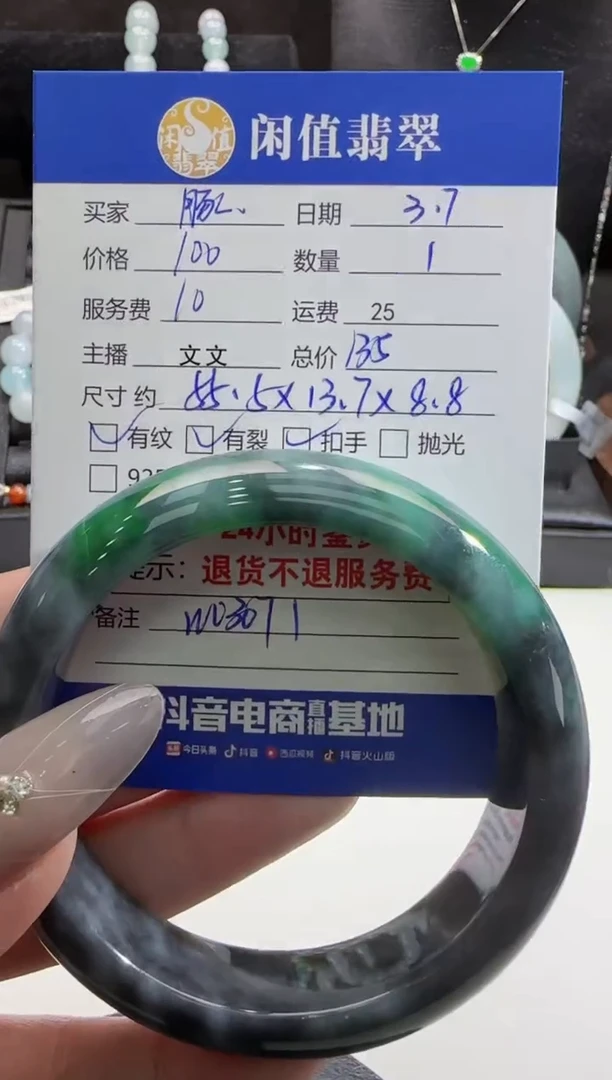 闲值翡翠
闲值翡翠
买家 日期 3.7
价格 100 数量 1
服务费 10 运费 25
主播 文文 总价 135
尺寸 约 55.5×13.7×8.8
有纹 有裂 扣手 抛光
24小时鉴
示：退货不退服务费
备注
抖音电商直播基地
今日头条 抖音 西瓜视频 抖音火山版